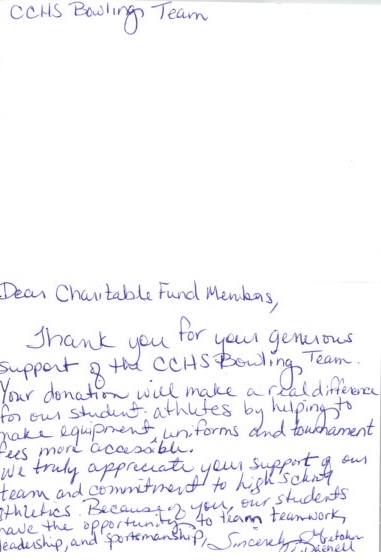 CCHS Bowling Team
Dear Charitable Fund Members,
Thank you for your generous
support of the CCHS Bowling Team.
Your donation will make a real difference
for our student-athletes by helping to
make equipment, uniforms and tournament
fees more accessible.
We truly appreciate your support of our
team and commitment to high school
athletics. Because of you, our students
have the opportunity to learn teamwork,
leadership, and sportsmanship. Sincerely,